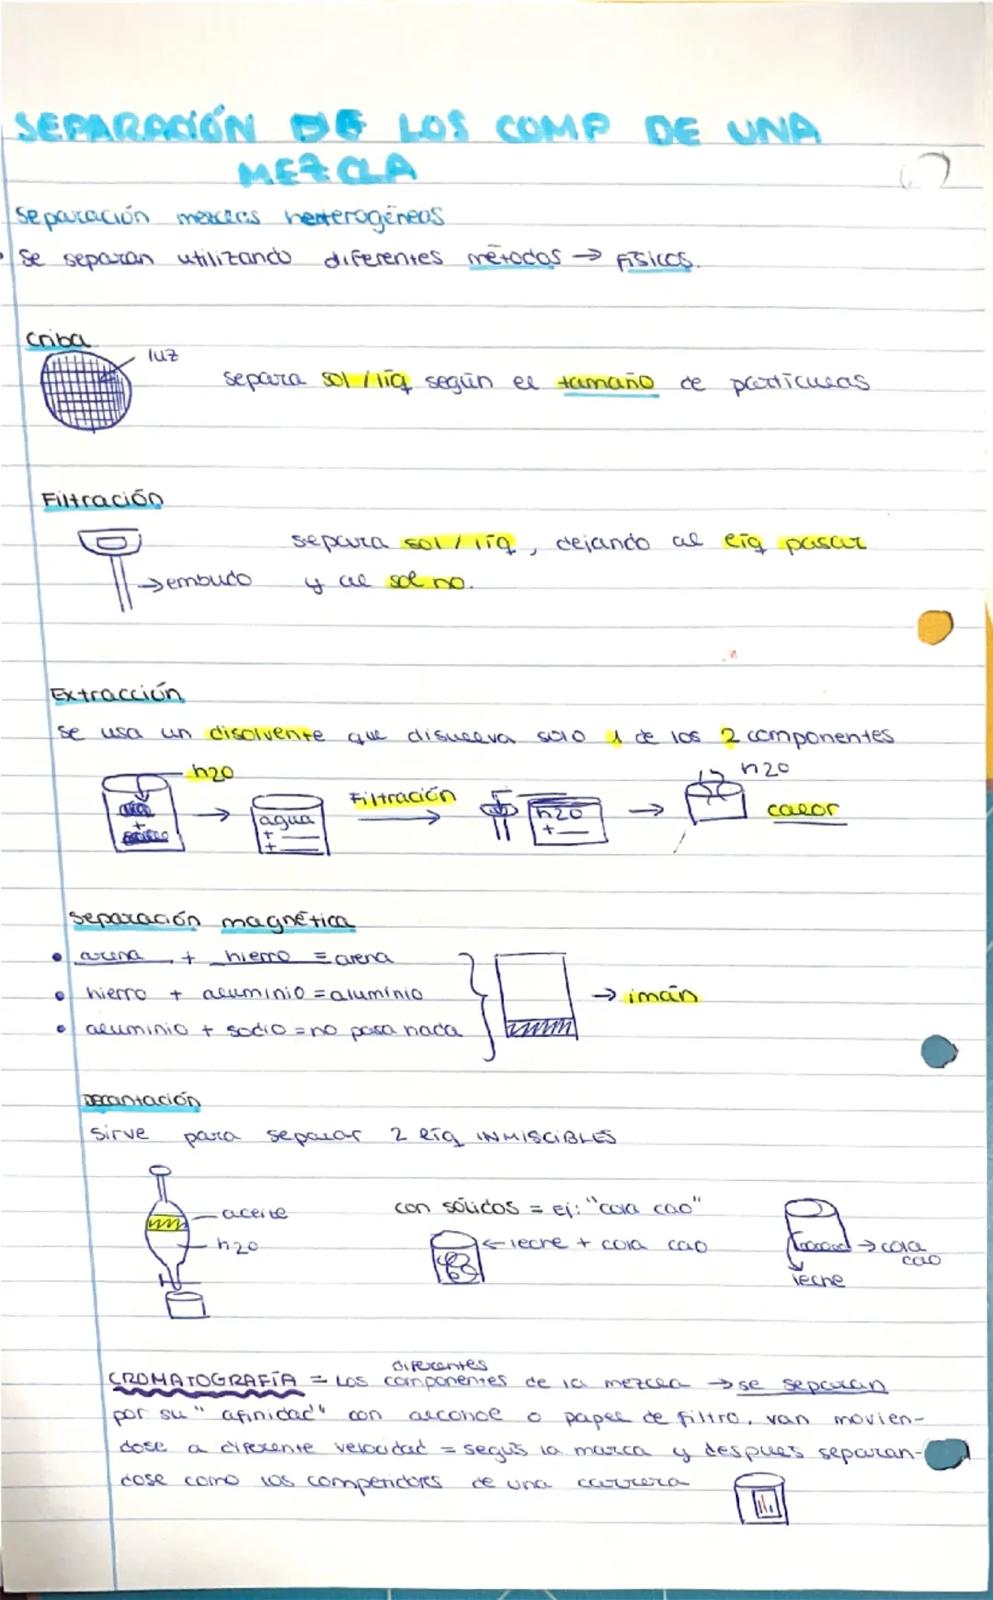 SEPARACIÓN DE LOS COMP DE UNA
MEZCLA
Separación mezclas heterogéneas
Se separan utilizando diferentes métodos → FÍSICOS.
Criba
luz
separa sol / líq según el tamaño de partículas
Filtración
separa sol / líq, dejando al líq pasar
→ embudo
y al sol no.
Extracción
se usa un disolvente que disuelva solo 1 de los 2 componentes
h2O
+
→
agua
+
+
Filtración
→
h2O
+
→
h2O
calor
Separación magnética
• arena + hierro = arena
• hierro + aluminio = aluminio
• aluminio + sodio = no pasa nada
→ imán
Decantación
sirve para separar 2 líq INMISCIBLES
aceite
h2O
con sólidos = Ej: "cola cao"
← leche + cola cao
→ cola
cao
leche
CROMATOGRAFÍA = Los diferentes componentes de la mezcla → se separan
por su "afinidad" con alcohol o papel de filtro, van movien-
dose a diferente velocidad = según la marca y despues separan-
dose como los competidores de una carrera